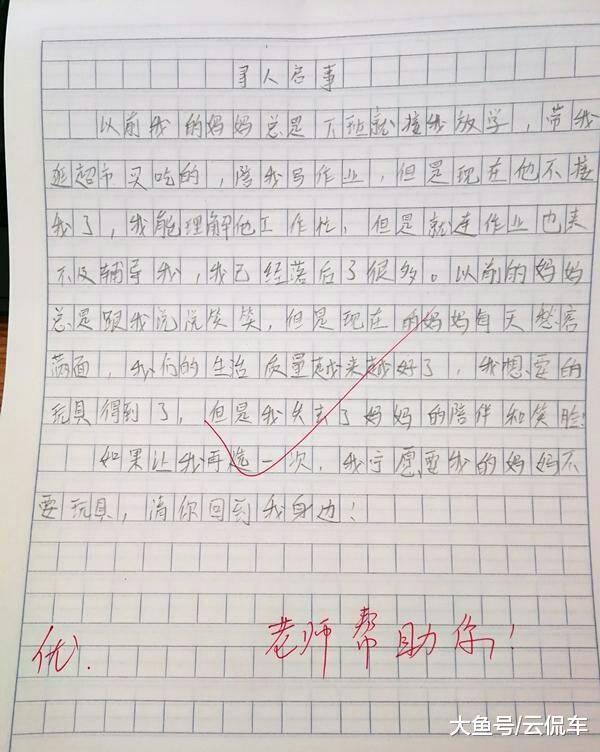 寻人启事
以前我的妈妈总是下班就接我放学，带我
逛超市买吃的，陪我写作业，但是现在他不接
我了，我能理解他工作忙，但是就连作业也来
不及辅导我，我已经落后了很多。以前的妈妈
总是跟我说说笑笑，但是现在的妈妈每天愁容
满面，我们的生活质量越来越好了，我想要的
玩具得到了，但是我失去了妈妈的陪伴和笑脸！
如果让我再选一次，我宁愿要我的妈妈不
要玩具，请你回到我身边！
优.
老师帮助你！
大鱼号/云侃车